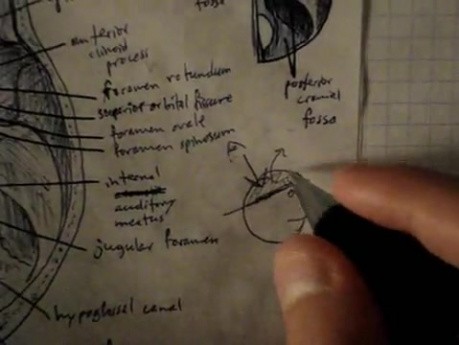 fossa
anterior
clinoid
process
foramen rotundum
superior orbital fissure
foramen ovale
foramen spinosum
posterior
cranial
fossa
internal
auditory
meatus
jugular foramen
hypoglossal canal